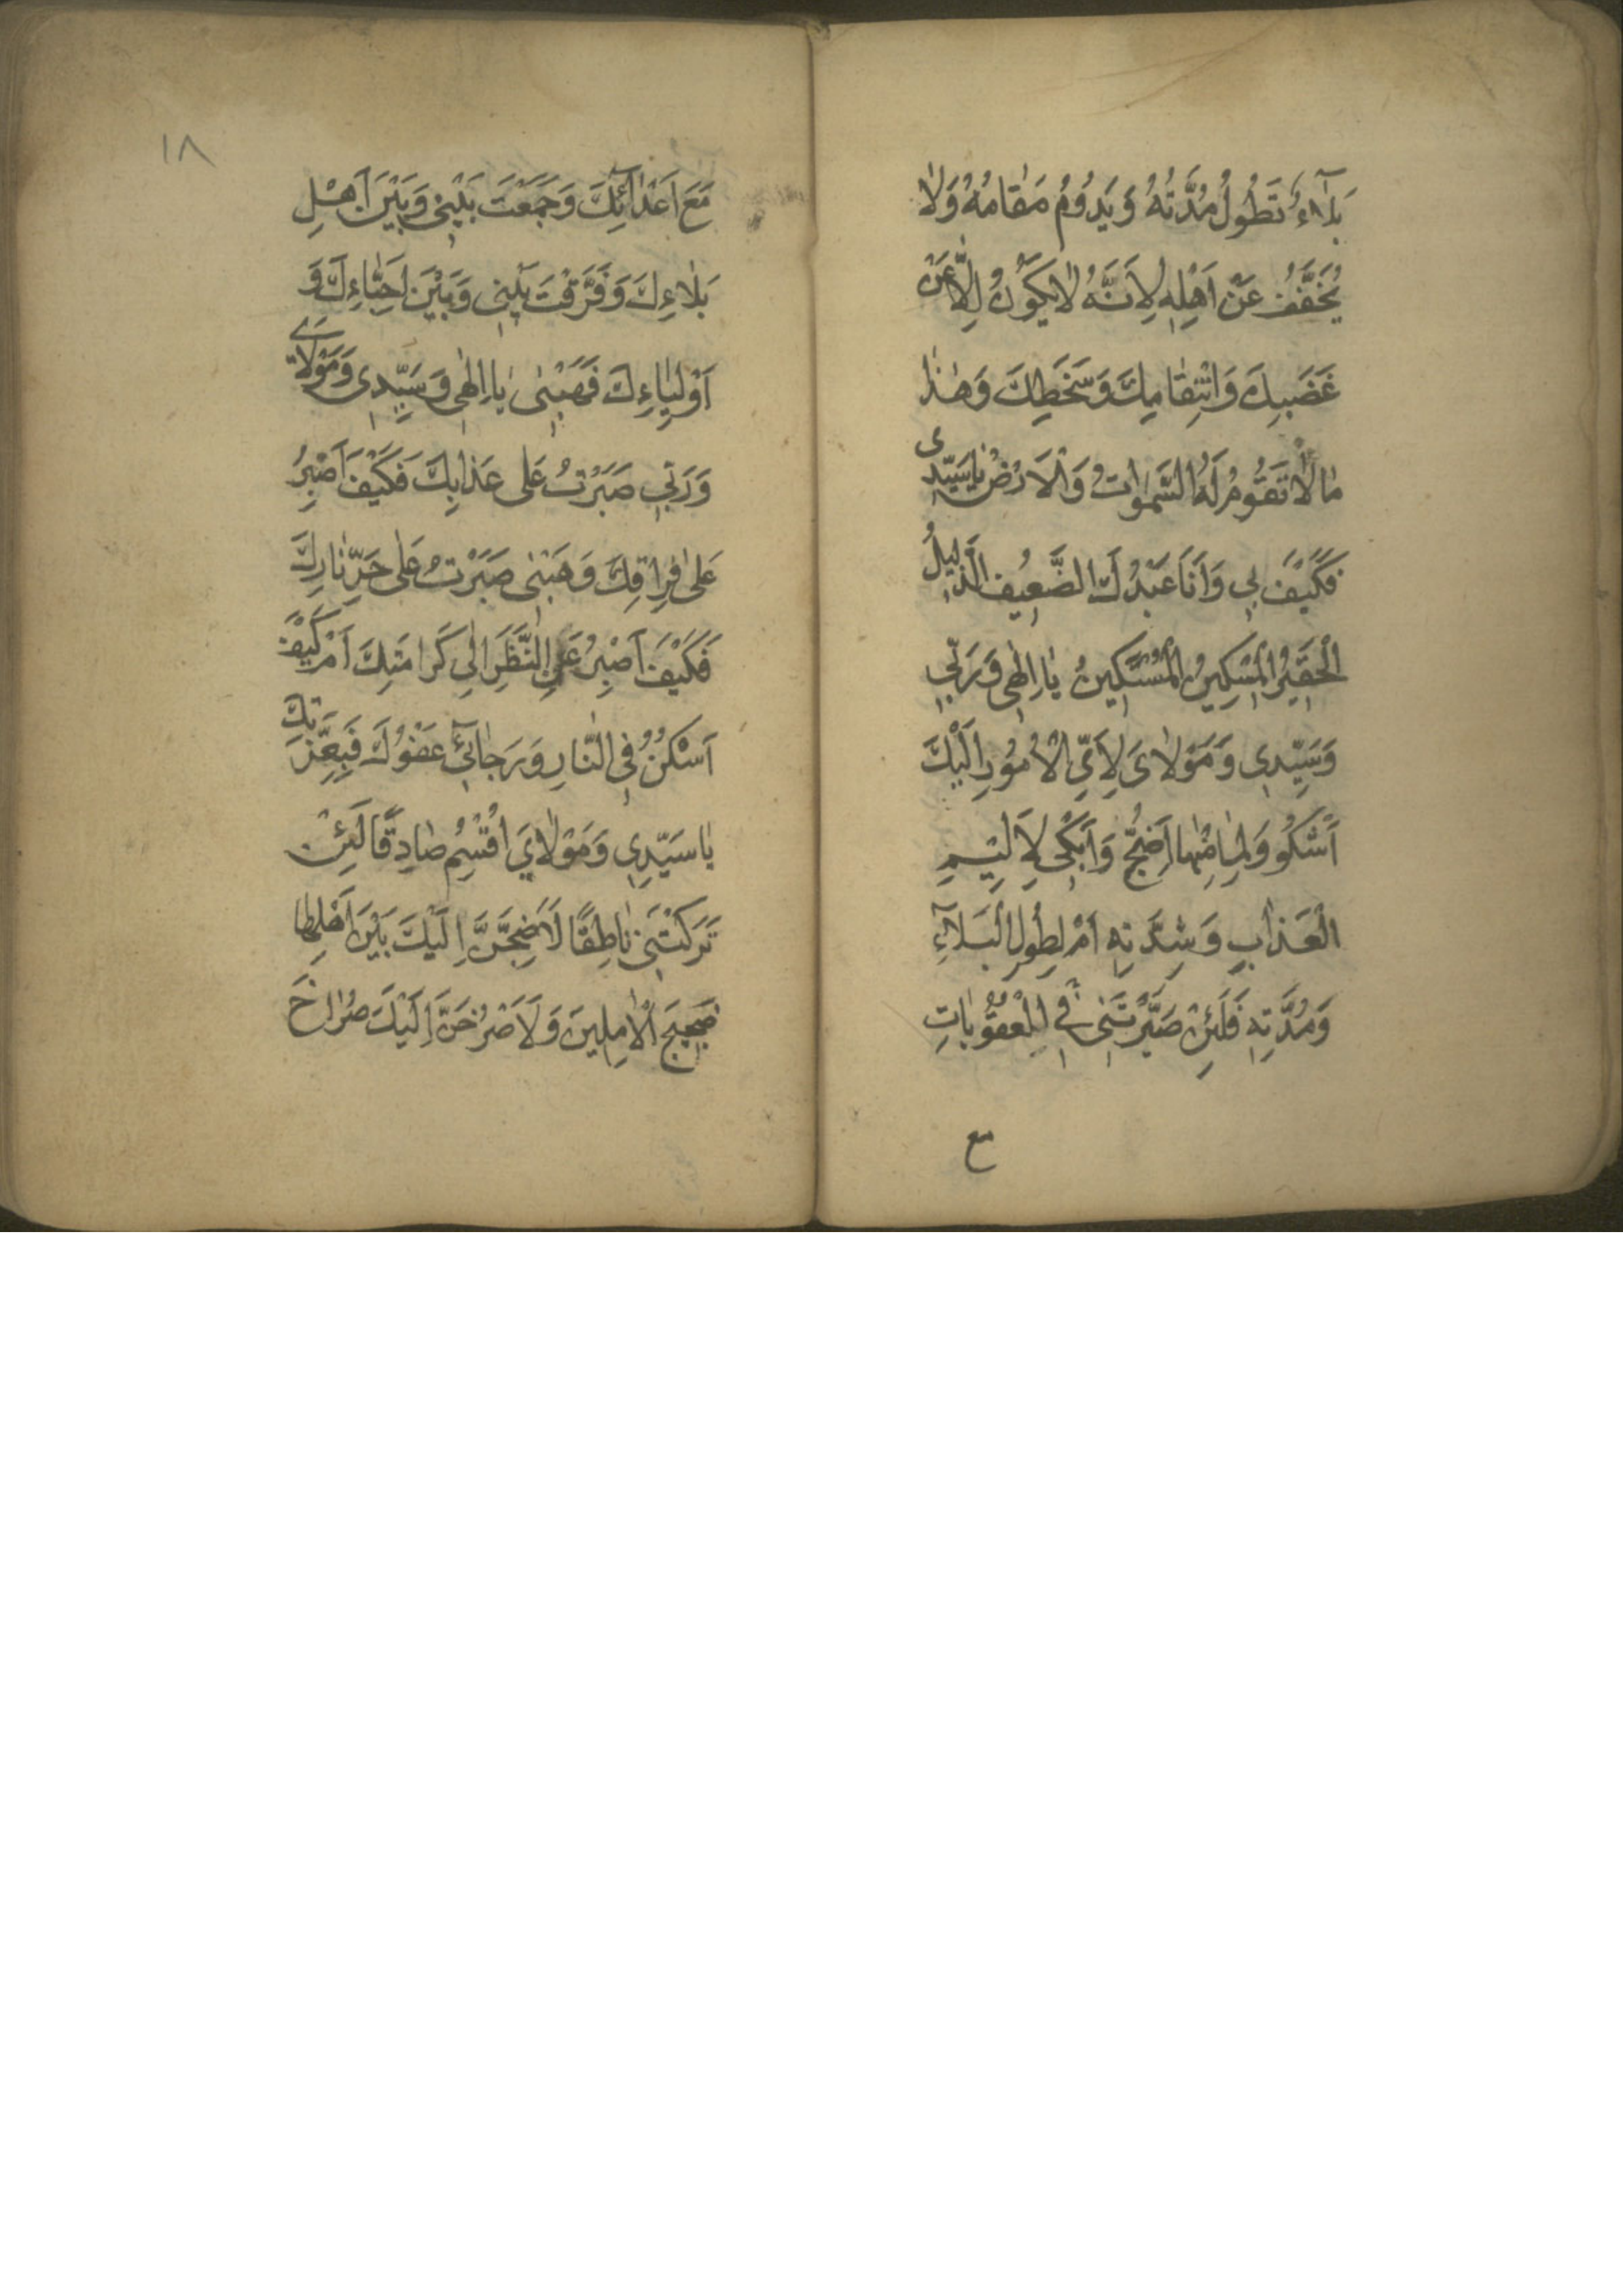 بَلآءٌ تَطُولُ مُدَّتُهُ وَيَدُومُ مَقٰامُهُ وَلاٰ
يُخَفَّفُ عَنْ اَهْلِهِ لِاَنَّهُ لاٰيَكُونُ اِلّٰا عَنْ
غَضَبِكَ وَانْتِقٰامِكَ وَسَخَطِكَ وَهٰذٰا
مٰالاٰ تَقُومُ لَهُ السَّمٰوٰاتُ وَالْاَرْضُ يٰاسَيِّدِى
فَكَيْفَ بِي وَاَنَا عَبْدُكَ الضَّعِيفُ الذَّلِيلُ
الْحَقِيرُ الْمِسْكِينُ الْمُسْتَكِينُ يٰا اِلٰهِى وَرَبِّي
وَسَيِّدِى وَمَوْلاٰىَ لِاَىِّ الْاُمُورِ اِلَيْكَ
اَشْكُو وَلِمٰا مِنْهٰا اَضِجُّ وَاَبْكِى لِاَلِيمِ
الْعَذٰابِ وَشِدَّتِهِ اَمْ لِطُولِ الْبَلآءِ
وَمُدَّتِهِ فَلَئِنْ صَيَّرْتَنِى فِي الْعُقُوبٰاتِ
مع
١٨
مَعَ اَعْدٰائِكَ وَجَمَعْتَ بَيْنِى وَبَيْنَ اَهْلِ
بَلٰاءِكَ وَفَرَّقْتَ بَيْنِى وَبَيْنَ اَحِبّٰاءِكَ وَ
اَوْلِيٰاءِكَ فَهَبْنِى يٰا اِلٰهِى وَسَيِّدِى وَمَوْلاٰىَ
وَرَبِّي صَبَرْتُ عَلٰى عَذٰابِكَ فَكَيْفَ اَصْبِرُ
عَلٰى فِرٰاقِكَ وَهَبْنِى صَبَرْتُ عَلٰى حَرِّ نٰارِكَ
فَكَيْفَ اَصْبِرُ عَنِ النَّظَرِ اِلٰى كَرامَتِكَ اَمْ كَيْفَ
اَسْكُنُ فِى النّٰارِ وَرَجٰائِي عَفْوُكَ فَبِعِزَّتِكَ
يٰا سَيِّدِى وَمَوْلاٰيَ اُقْسِمُ صٰادِقًا لَئِنْ
تَرَكْتَنِى نٰاطِقًا لَاَضِجَّنَّ اِلَيْكَ بَيْنَ اَهْلِهٰا
ضَجِيجَ الْاٰمِلِينَ وَلَاَصْرُخَنَّ اِلَيْكَ صُرٰاخَ